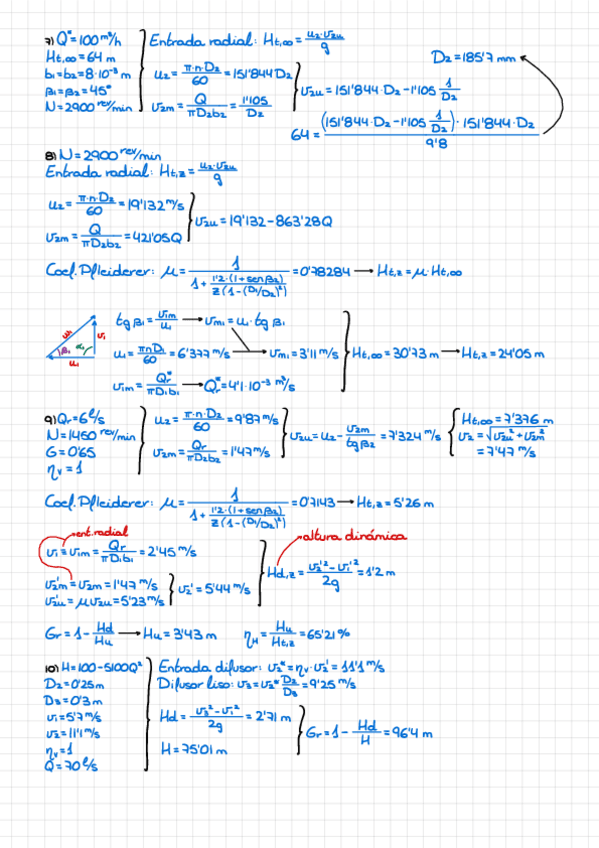 7) Q* = 100 m³/h
Ht,∞ = 64 m
b1 = b2 = 8·10⁻³ m
β1 = β2 = 45°
N = 2900 rev/min
Entrada radial: Ht,∞ = u2·v2u / g
u2 = π·n·D2 / 60 = 151'844 D2
v2m = Q / πD2b2 = 1'105 / D2
v2u = 151'844·D2 - 1'105 1/D2
D2 = 185'7 mm
64 = (151'844·D2 - 1'105 1/D2)·151'844·D2 / 9'8
8) N = 2900 rev/min
Entrada radial: Ht,z = u2·v2u / g
u2 = π·n·D2 / 60 = 19'132 m/s
v2m = Q / πD2b2 = 421'05Q
v2u = 19'132 - 863'28Q
Coef. Pfleiderer: μ = 1 / (1 + 1'2·(1 + sen β2) / z(1 - (D1/D2)²)) = 0'78284 → Ht,z = μ·Ht,∞
u1
v1
β1
α1
u1
tg β1 = v1m / u1 → vm1 = u1·tg β1
u1 = πnD1 / 60 = 6'377 m/s → vm1 = 3'11 m/s
v1m = Qr* / πD1b1 → Qr* = 4'1·10⁻³ m³/s
Ht,∞ = 30'73 m → Ht,z = 24'05 m
9) Qr = 6 l/s
N = 1450 rev/min
G = 0'65
ηv = 1
u2 = π·n·D2 / 60 = 9'87 m/s
v2m = Qr / πD2b2 = 1'47 m/s
v2u = u2 - v2m / tg β2 = 7'324 m/s
Ht,∞ = 7'376 m
v2 = √(v2u² + v2m²)
= 7'47 m/s
Coef. Pfleiderer: μ = 1 / (1 + 1'2·(1 + sen β2) / z(1 - (D1/D2)²)) = 0'7143 → Ht,z = 5'26 m
ent. radial
v1 = v1m = Qr / πD1b1 = 2'45 m/s
v2'm = v2m = 1'47 m/s
v2'u = μ v2u = 5'23 m/s
v2' = 5'44 m/s
altura dinámica
Hd,z = v2'² - v1'² / 2g = 1'2 m
Gr = 1 - Hd / Hu → Hu = 3'43 m
ηH = Hu / Ht,z = 65'21 %
10) H = 100 - 5100Q²
D2 = 0'25 m
D3 = 0'3 m
v1 = 5'7 m/s
v2 = 11'1 m/s
ηv = 1
Q = 70 l/s
Entrada difusor: v2* = ηv·v2' = 11'1 m/s
Difusor liso: v3 = v2* D2/D3 = 9'25 m/s
Hd = v3² - v1² / 2g = 2'71 m
H = 75'01 m
Gr = 1 - Hd / H = 96'4 m